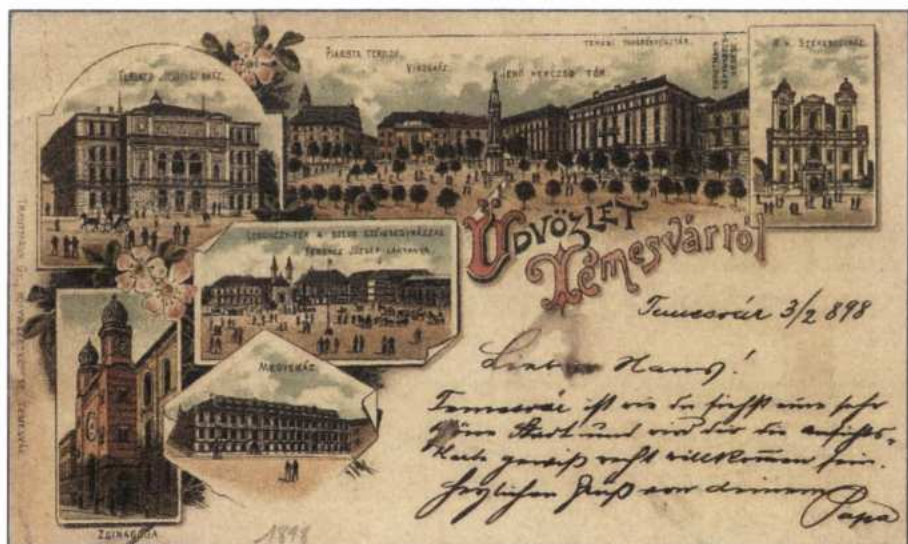 PIARISTA TEMPLOM
VÁROSHÁZ.
JENŐ HERCZEG TÉR
TEMÉNI
R. K. SZÉKESEGYHÁZ.
FERENCZ JÓZSEF SZINHÁZ.
ÜDVÖZLET
TEMESVÁRRÓL
LOSONCZY-TÉR A SZERB SZÉKESEGYHÁZZAL
FERENCZ JÓZSEF-LAKTANYA.
MEGYEHÁZ.
ZSINAGÓGA
Temesvár 3/2 898
Lieber Hans!
Temesvár ist wie du siehst eine sehr
schöne Stadt und wird dir die Ansichts-
Karte gewiß recht willkommen sein.
Herzlichen Gruß von deinem
Papa
1898